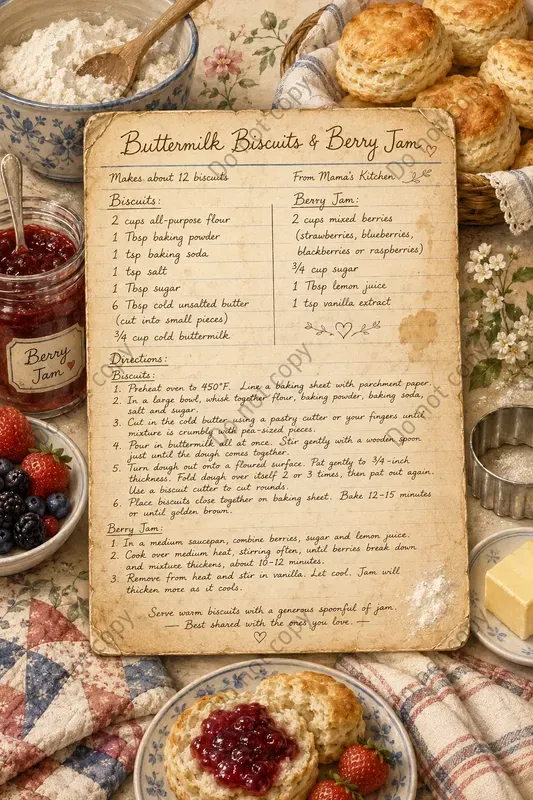 Buttermilk Biscuits & Berry Jam
Makes about 12 biscuits
From Mama's Kitchen
Biscuits:
2 cups all-purpose flour
1 Tbsp baking powder
1 tsp baking soda
1 tsp salt
1 Tbsp sugar
6 Tbsp cold unsalted butter
(cut into small pieces)
3/4 cup cold buttermilk
Berry Jam:
2 cups mixed berries
(strawberries, blueberries,
blackberries or raspberries)
3/4 cup sugar
1 Tbsp lemon juice
1 tsp vanilla extract
Directions:
Biscuits:
1. Preheat oven to 450°F. Line a baking sheet with parchment paper.
2. In a large bowl, whisk together flour, baking powder, baking soda,
salt and sugar.
3. Cut in the cold butter using a pastry cutter or your fingers until
mixture is crumbly with pea-sized pieces.
4. Pour in buttermilk all at once. Stir gently with a wooden spoon
just until the dough comes together.
5. Turn dough out onto a floured surface. Pat gently to 3/4-inch
thickness. Fold dough over itself 2 or 3 times, then pat out again.
Use a biscuit cutter to cut rounds.
6. Place biscuits close together on baking sheet. Bake 12-15 minutes
or until golden brown.
Berry Jam:
1. In a medium saucepan, combine berries, sugar and lemon juice.
2. Cook over medium heat, stirring often, until berries break down
and mixture thickens, about 10-12 minutes.
3. Remove from heat and stir in vanilla. Let cool. Jam will
thicken more as it cools.
Serve warm biscuits with a generous spoonful of jam.
— Best shared with the ones you love. —
Berry
Jam
Do not copy
Do not copy
Do not copy
Do not copy
Do not copy
Do not copy